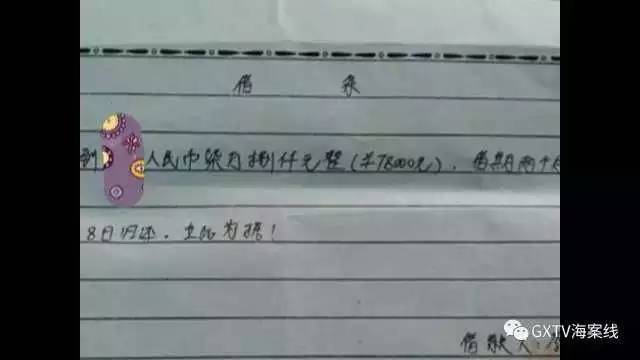 借 条
到 人民币柒万捌仟元整(¥78000元)。借期两个月
8日归还。立此为据!
借款人:
GXTV海案线